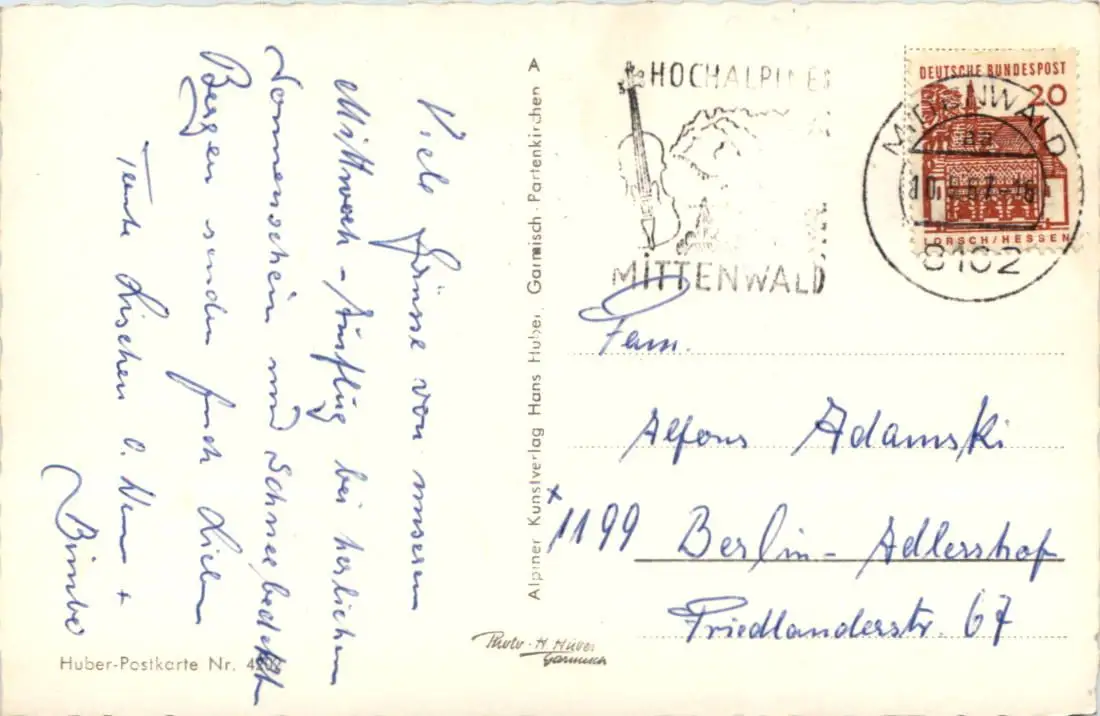 Viele Grüsse von unserem
Mittwoch - Ausflug bei herlichem
Sonnenschein und Schneebedeckten
Bergen senden Euch Lieben
Tante Lischen O.
+
Bimbo
Huber-Postkarte Nr.
Alpiner Kunstverlag Hans Huber, Garmisch-Partenkirchen A
Photo - H. Huber
Garmisch
HOCHALPINES
MITTENWALD
DEUTSCHE BUNDESPOST
20
LORSCH/HESSEN
MITTENWALD
8102
Fam.
Alfons Adamski
x
1199 Berlin - Adlershof
Friedlanderstr. 67